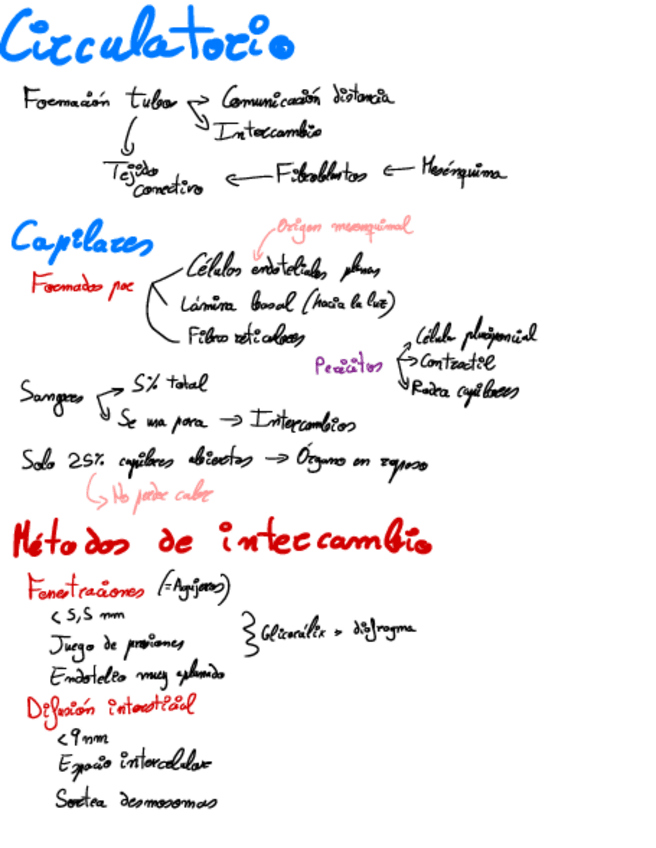 Circulatorio
Formación tubos → Comunicación distancia
Intercambio
Tejido conectivo ← Fibroblastos ← Mesénquima
Capilares
Origen mesenquimal
Formados por
Células endoteliales planas
Lámina basal (hacia la luz)
Fibras reticulares
Pericitos
Célula pluripoencial
Contractil
Rodea capilares
Sangres → 5% total
Se usa para → Intercambios
Solo 25% capilares abiertos → Órgano en reposo
No poder caber
Métodos de intercambio
Fenestraciones (=Agujeros)
< 5,5 nm
Juego de presiones
Endotelio muy aplanado
} Glicocálix → diafragma
Difusión intersticial
< 9 nm
Espacio intercelular
Sortea desmosomas